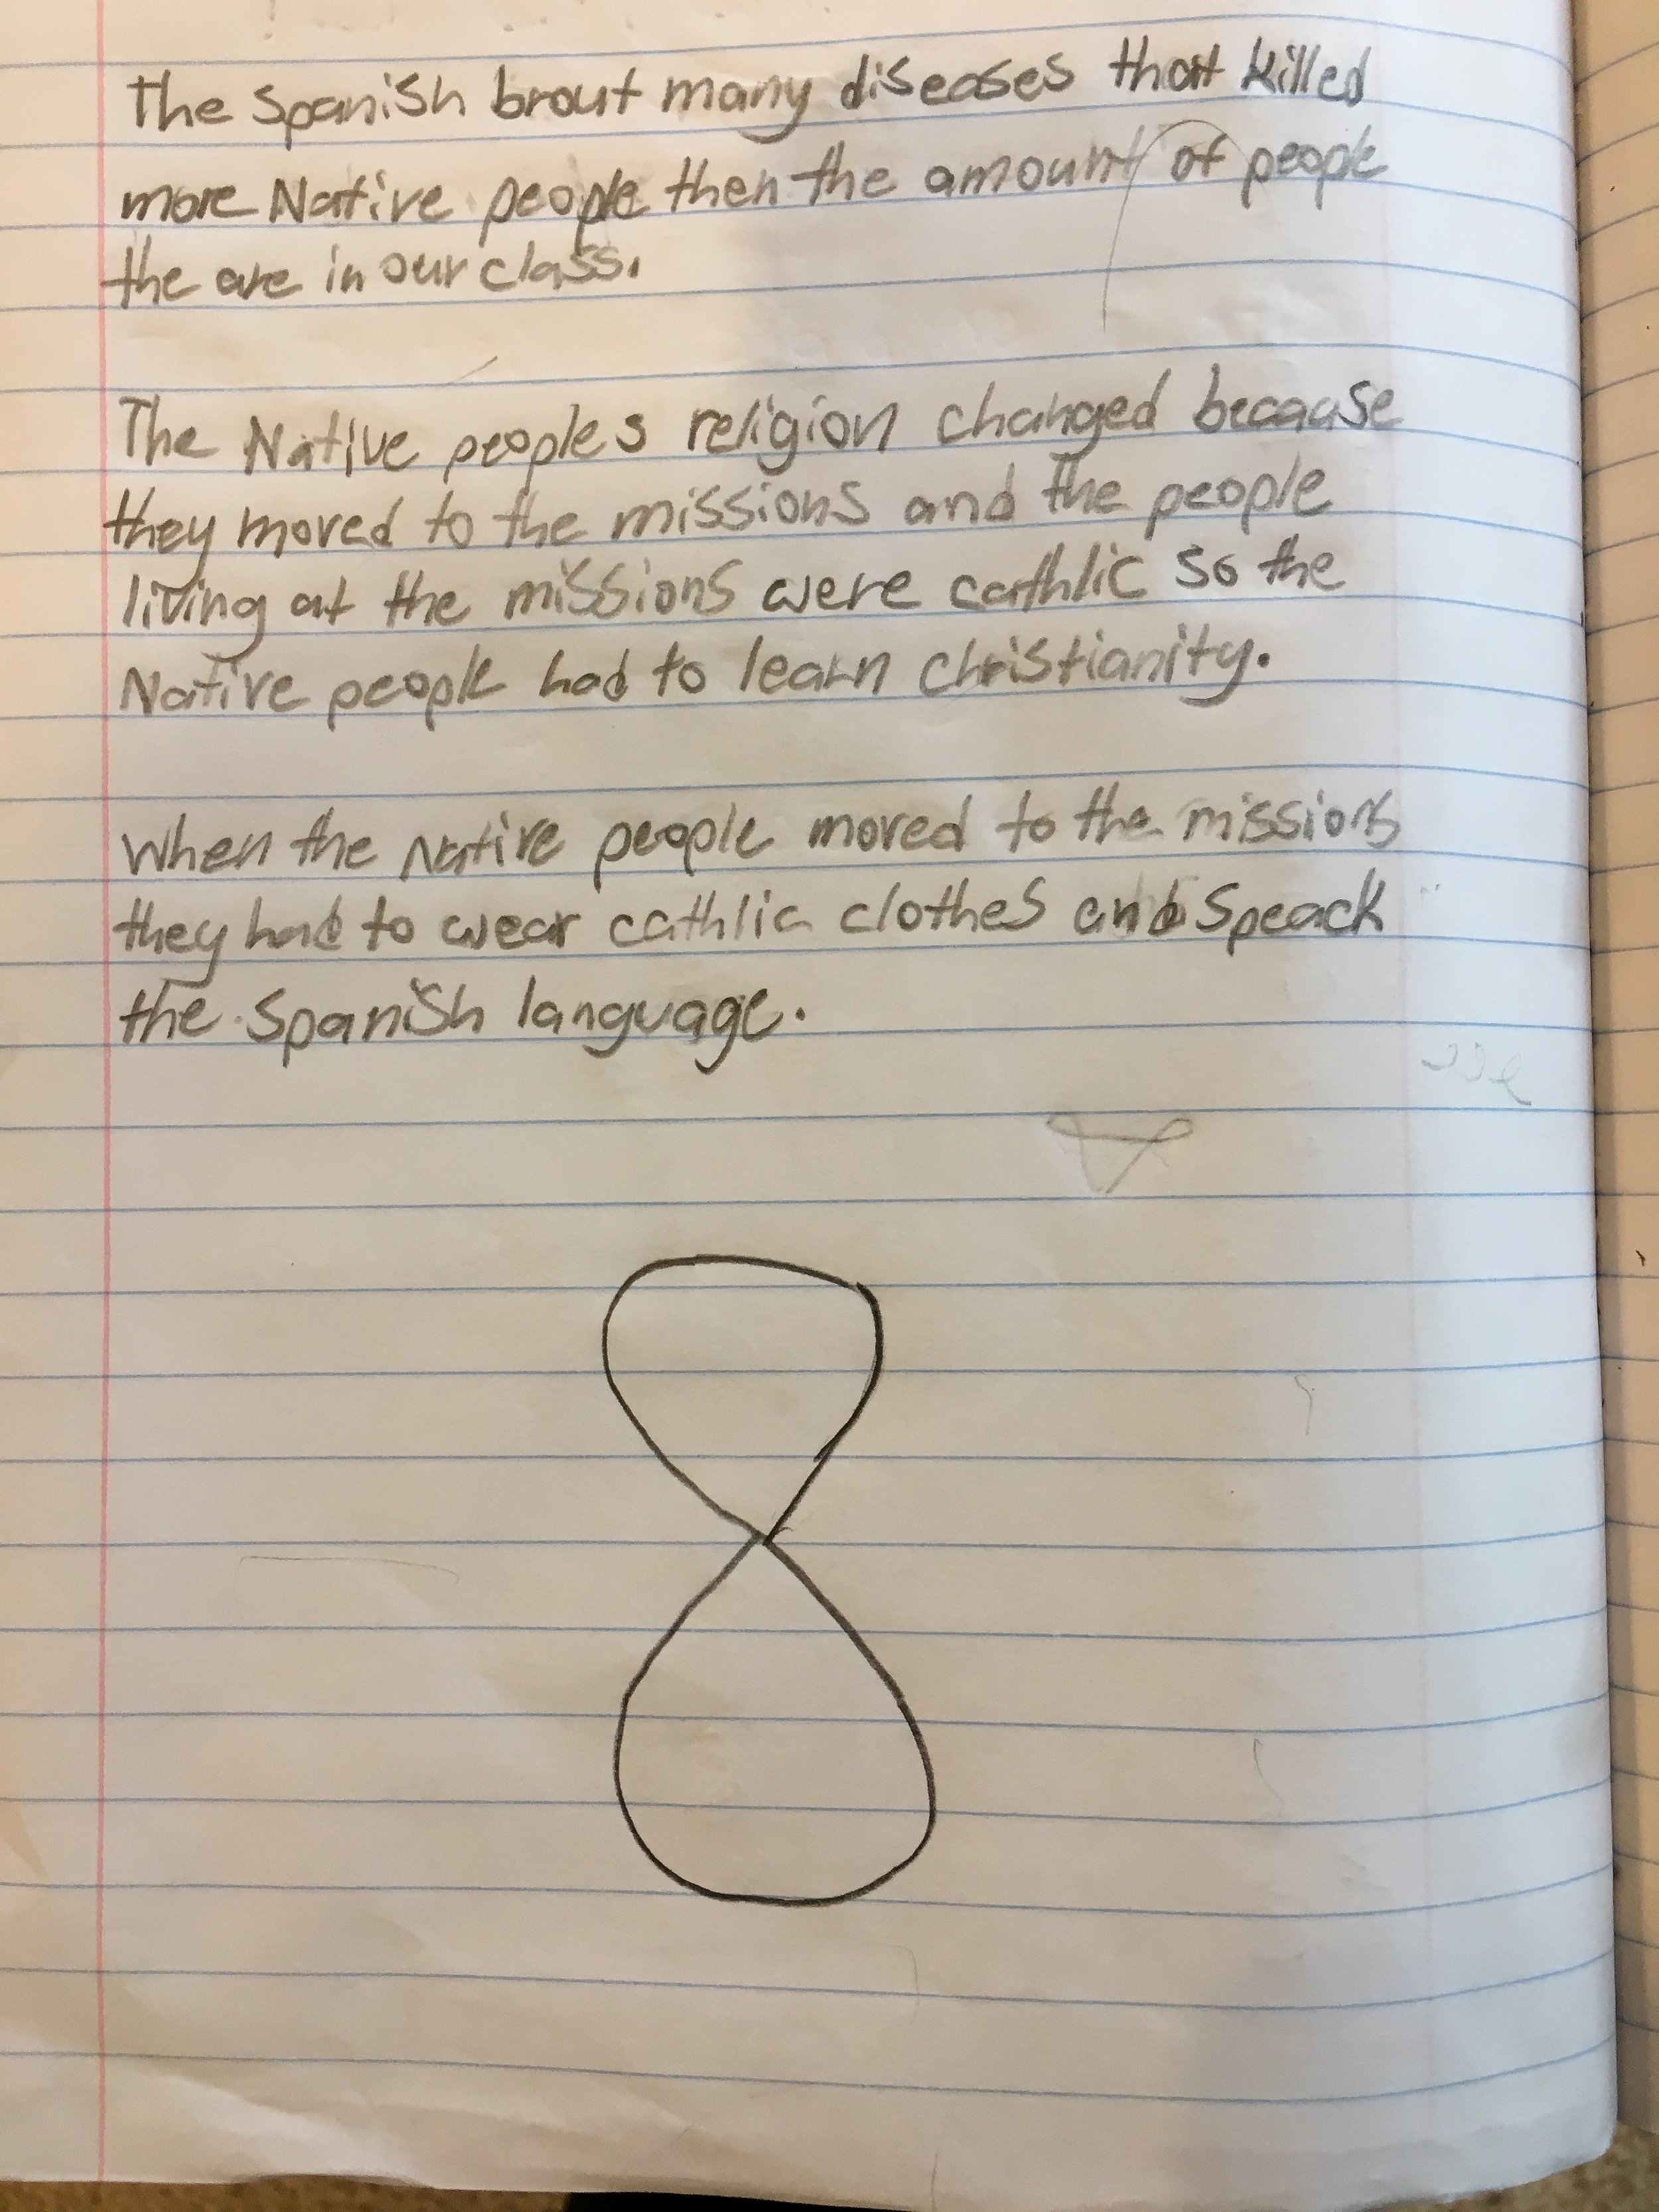 The Spanish brout many diseases that killed
more Native people then the amount of people
the are in our class.
The Native peoples religion changed becaause
they moved to the missions and the people
living at the missions were cathlic so the
Native people had to learn christianity.
When the Native people moved to the missions
they had to wear cathlic clothes and speack
the Spanish language.
8